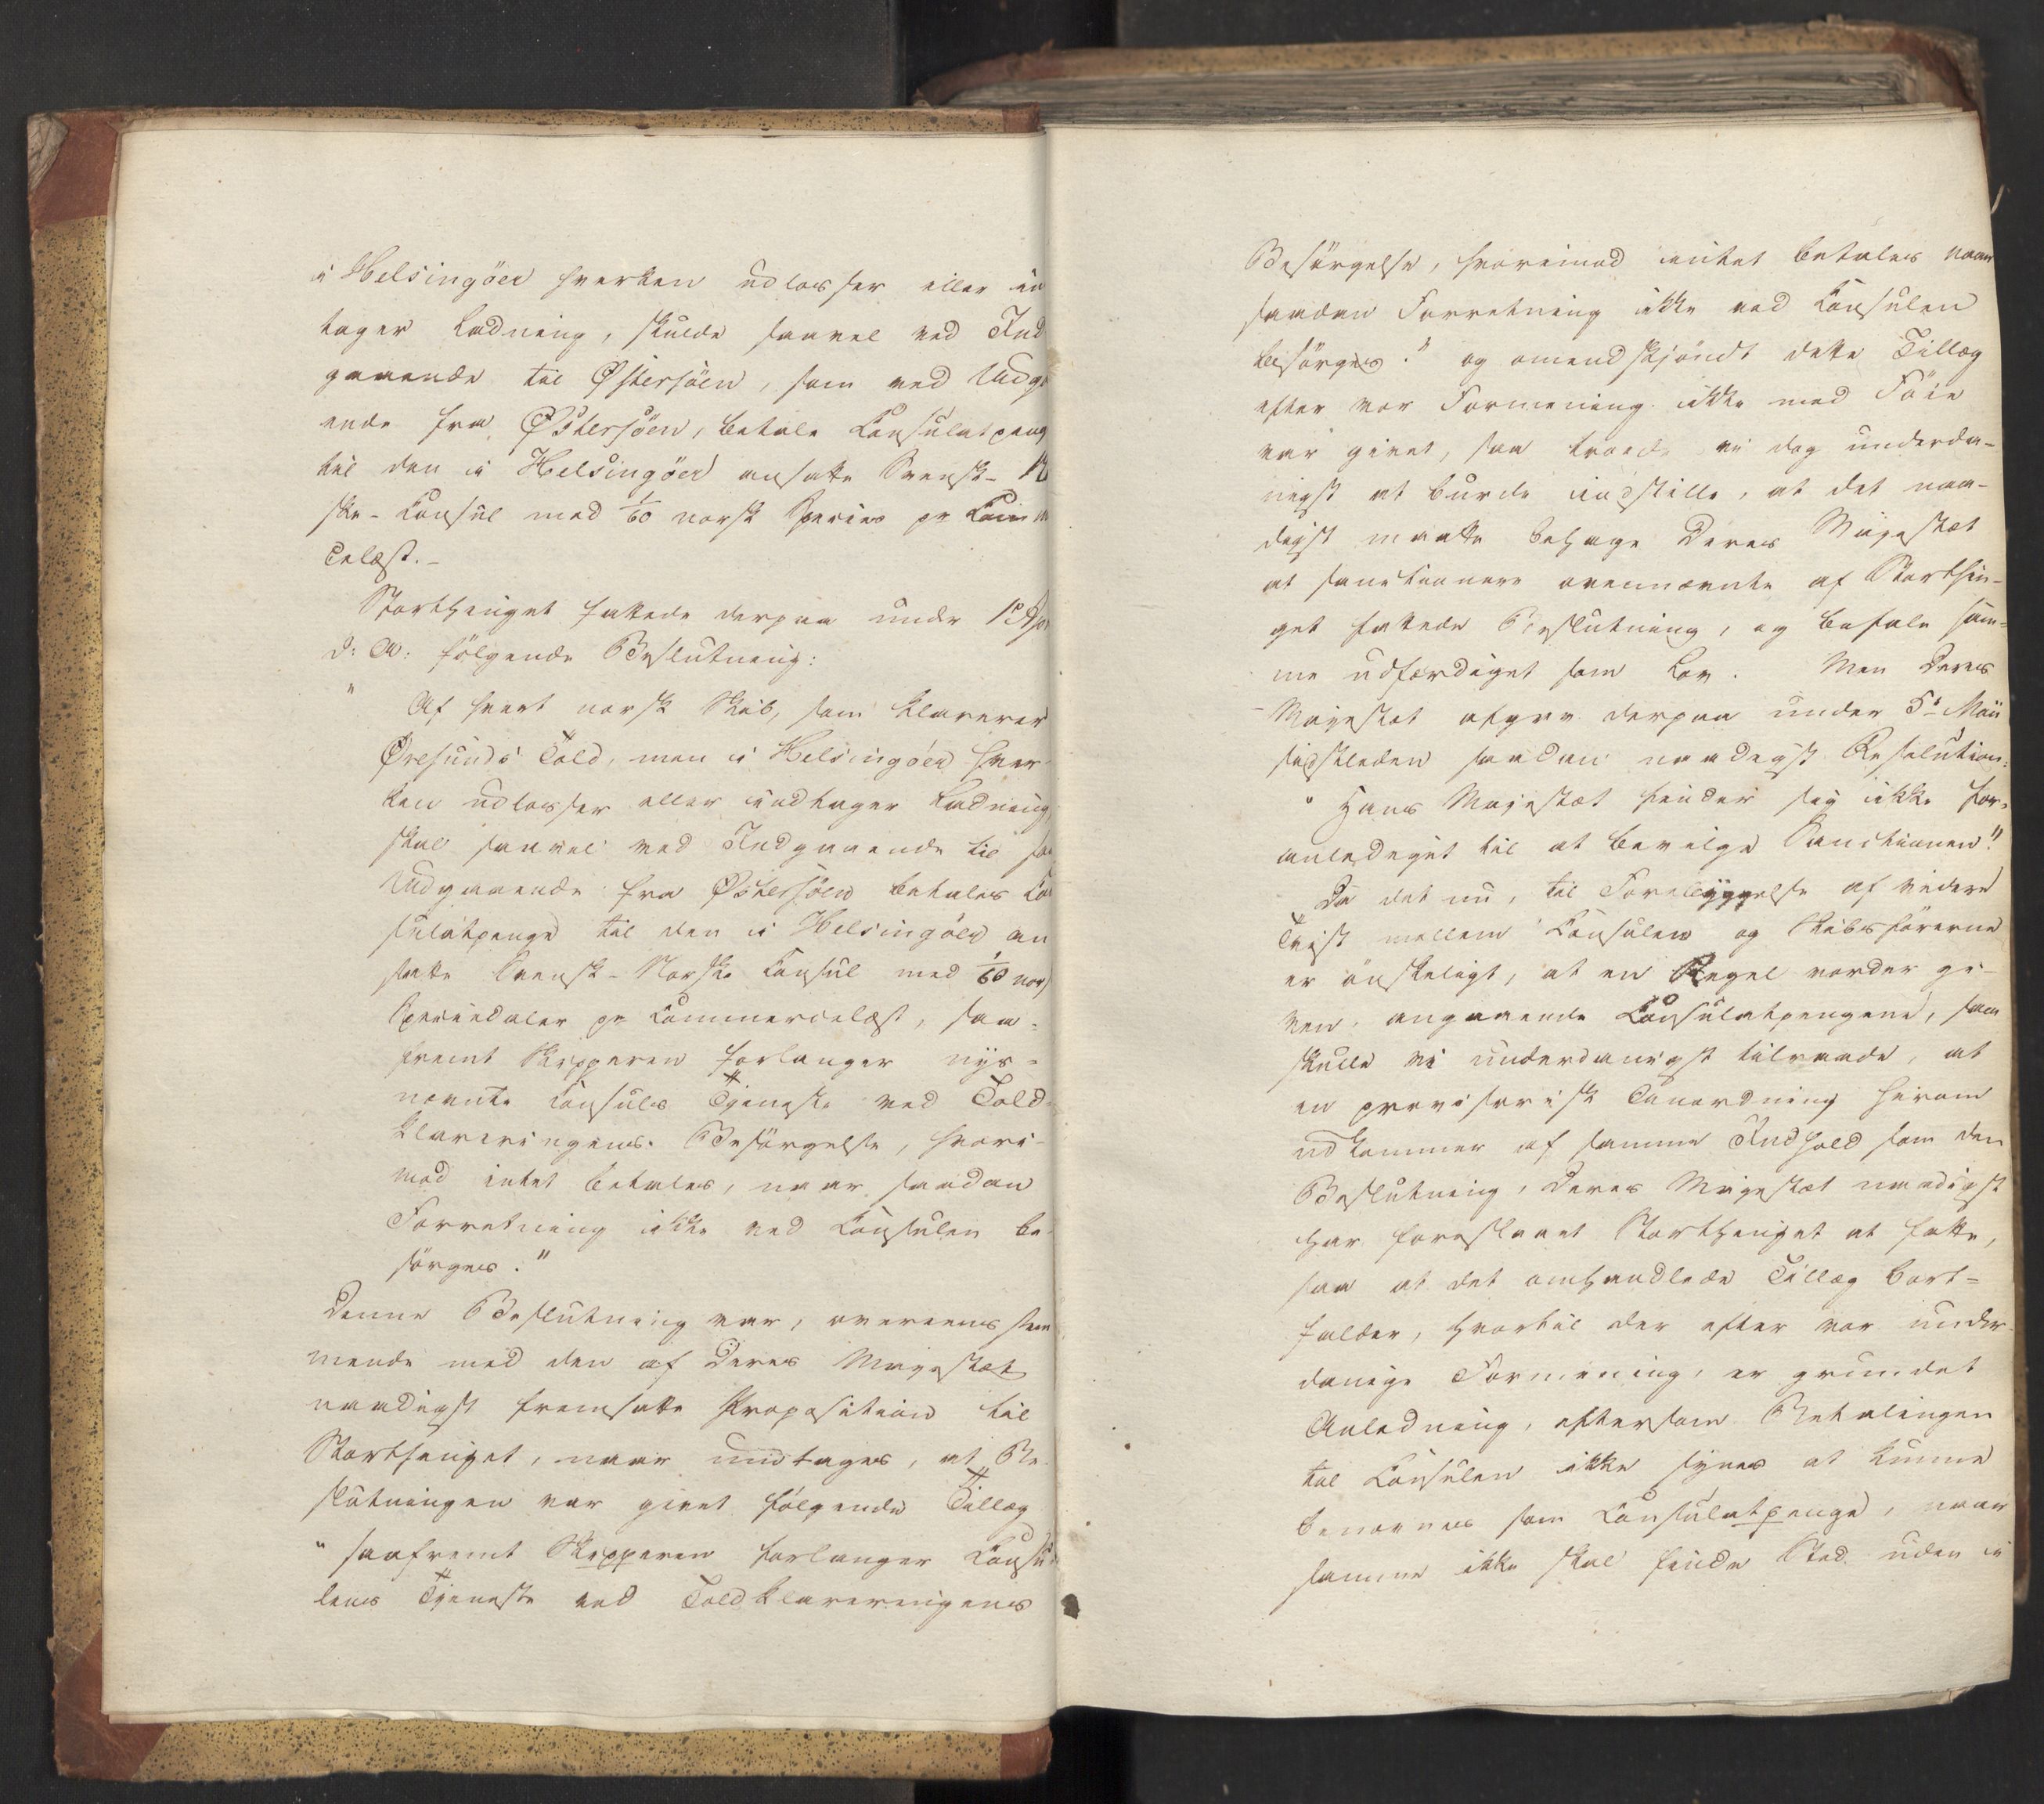 i Helsingöer hverken udlosser eller in
tager Ladning, skulde saavel ved Ind
gaaende til Østersöen, som ved Udga
ende fra Østersöen, betale Consulatpeng
til den i Helsingöer ansatte Svensk-
ske-Consul med 1/60 norsk Species pr Com
celæst.-
Storthinget fattede derpaa under
d: A: fölgende Beslutning:
" Af hvert norsk Skib, som klarerer
Øresunds Told, men i Helsingöer hver
ken udlosser eller indtager Ladning,
skal saavel ved Indgaaende til
Udgaaende fra Østersöen betales Con
sulatpenge til den i Helsingöer an
satte Svensk-Norske Consul med 1/60 nor
Speciedaler pr Commercelæst, saa-
fremt Skipperen forlanger nys-
nævnte Consuls Tjeneste ved Told-
klareringens Besörgelse, hvori-
mod intet betales, naar saadan
Forretning ikke ved Consulen be-
sörges."
Denne Beslutning var, overeensstem
mende med den af Deres Majestæt
naadigst fremsatte Proposition til
Storthinget, naar undtages, at Be-
slutningen var givet fölgende Tillæg
" saafremt Skipperen forlanger Consu-
lens Tjeneste ved Toldklareringens
Besörgelse, hvorimod intet betales naar
saadan Forretning ikke ved Consulen
besörges." og omendskjöndt dette Tillæg
efter vor Formening ikke med Föie
var givet, saa troede vi dog underda-
nigst at burde indstille, at det naa-
digst maatte behage Deres Majestæt
at sanctionere ovennævnte af Storthin-
get fattede Beslutning, og befale sam-
me udfærdiget som Lov. Men Deres
Majestæt afgav derpaa under 5te Maii
sidstleden saadan naadigst Resolution:
" Hans Majestæt finder sig ikke for-
anlediget til at bevilge Sanctionen."
Da det nu, til Forebyggelse af videre
Tvist mellem Consulen og Skibsförerne
er önskeligt, at en Regel vorder gi-
ven angaaende Consulatpengene, saa
skulle vi underdanigst tilraade, at
en provisorisk Anordning herom
udkommer af samme Indhold som den
Beslutning, Deres Majestæt naadigst
har foreslaaet Storthinget at fatte,
saa at det omhandlede Tillæg bort-
falder, hvortil der efter vor under-
danige Formening, er grundet
Anledning, eftersom Betalingen
til Consulen ikke synes at kunne
benævnes som Consulatpenge, naar
samme ikke skal finde Sted uden i